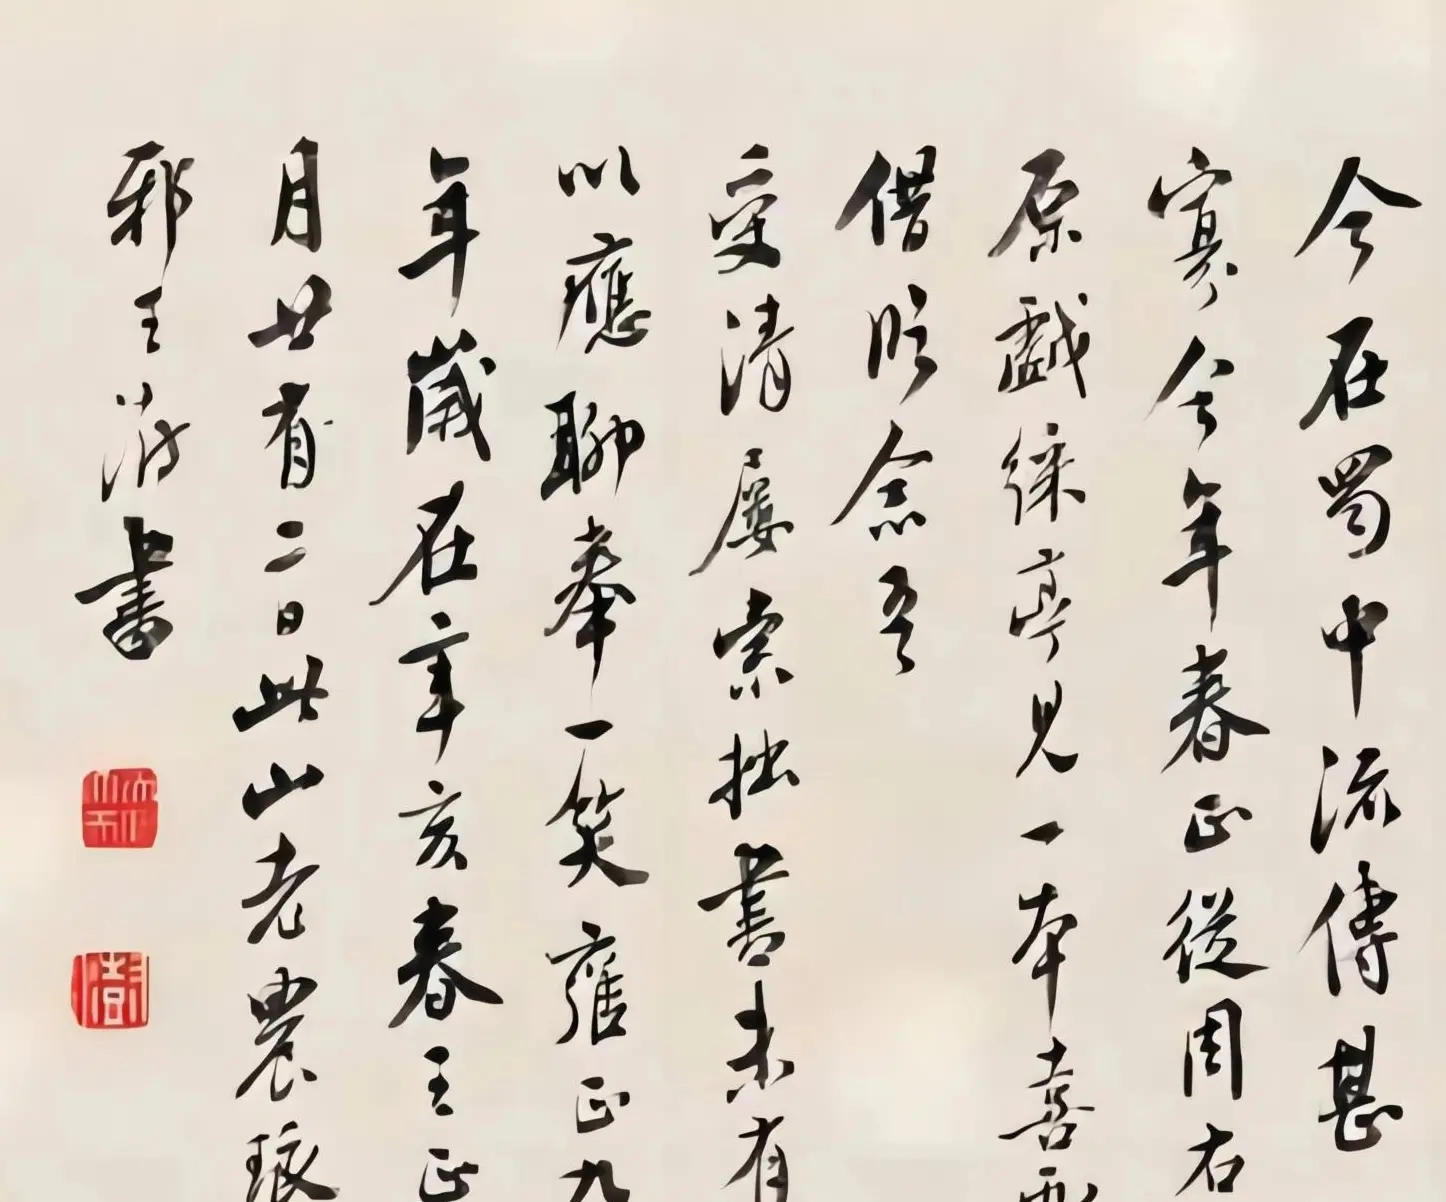 今在蜀中流傳甚
寡今年春正從周右
原戲綵亭見一本喜
借臨念吾
受清屢索拙書未有
以應聊奉一笑雍正九
年歲在辛亥春王正
月廿有二日此山老農琅
邪王澍書